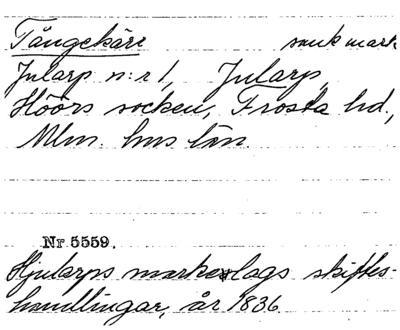 Tångekärr sank mark
Jularp n:r 1, Jularp,
Höörs socken, Frosta hd.,
Mlm. hus län.
Nr 5559.
Hjularps markelags skiftes-
handlingar, år 1836